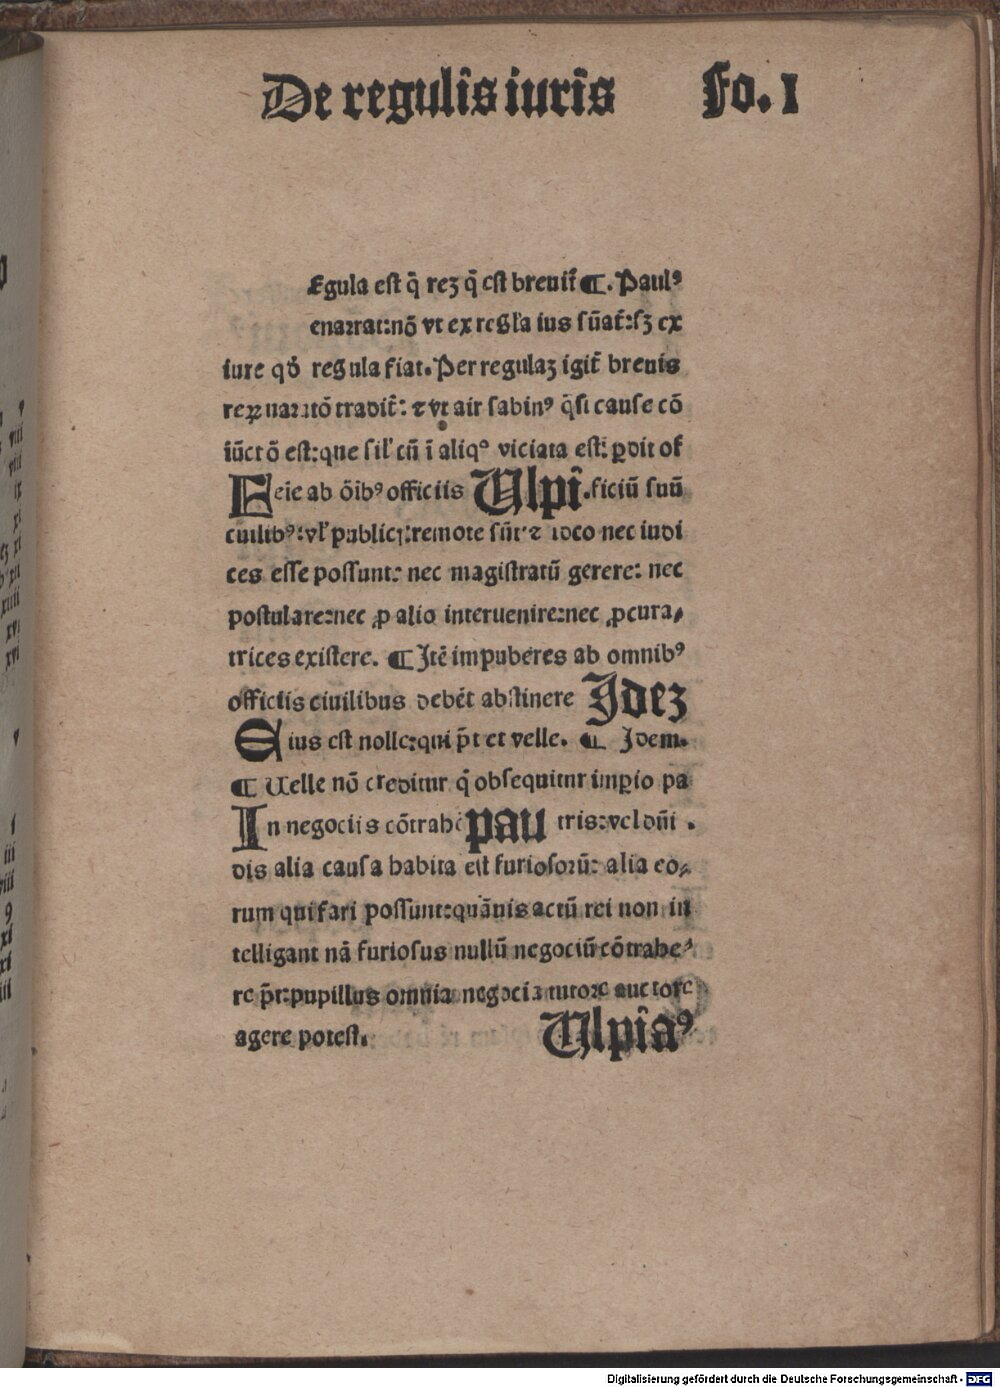 De regulis iuris Fo. I
Egula est q̄ rez q̄ est breuit̄ ¶. Paulꝰ
enarrat:nō vt ex regl'a ius sūat̄:sꝫ ex
iure qđ regula fiat. Per regulaꝫ igit̄ breuis
reꝝ narratō tradit̄: ⁊ vt ait sabinꝰ q̄si cause cō
iūctō est:que sil' cū ī aliqº viciata est: ꝑdit of
Feie ab ōibꝰ officiis Ulpī. ficiū suū
ciuilibꝰ:vl' publicꝭ:remote sūt: ⁊ ioco nec iudi
ces esse possunt: nec magistratū gerere: nec
postulare:nec ꝓ alio interuenire:nec ꝓcura⸗
trices existere. ¶ Itē impuberes ab omnibꝰ
officiis ciuilibus debēt abstinere Idez
Eius est nolle:qui p̄t et velle. ¶ Idem.
¶ Uelle nō creditur q̄ obsequitur imꝑio pa
In negociis cōtrahē pau tris:vel dn̄i .
dis alia causa habita est furiosorū: alia eo⸗
rum qui fari possunt:quāuis actū rei non in
telligant nā furiosus nullū negociū cōtrahe⸗
re p̄t:pupillus omnia negocia tutore auctore
agere potest. Ulpīaꝰ
Digitalisierung gefördert durch die Deutsche Forschungsgemeinschaft - DFG